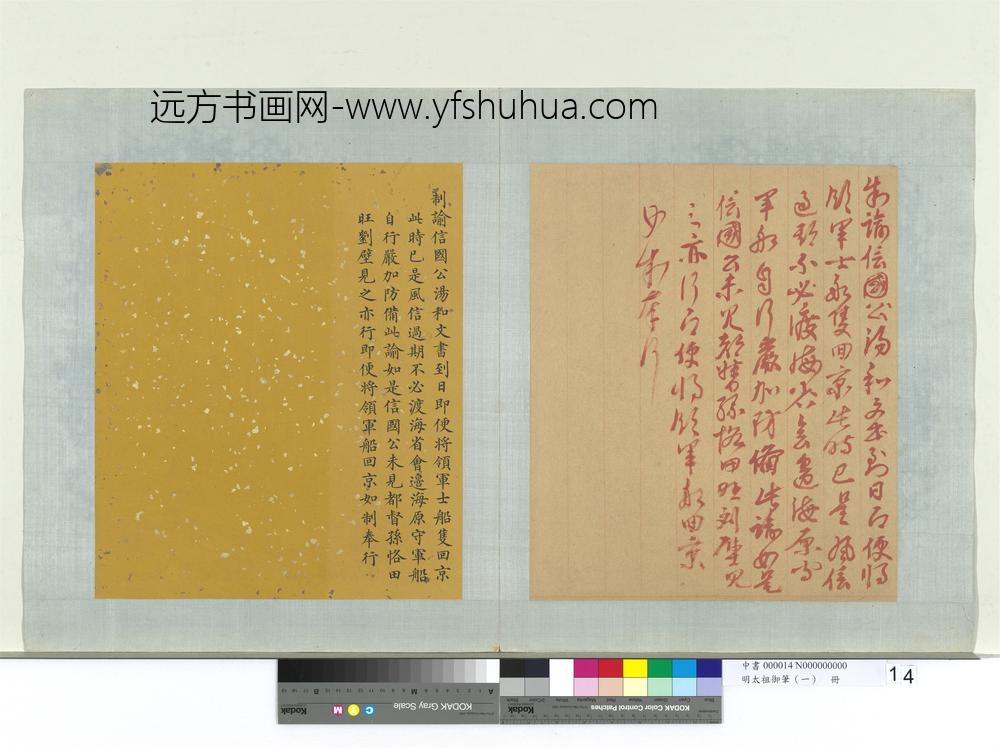 远方书画网-www.yfshuhua.com
制諭信國公湯和文書到日即便將
領軍士船隻回京此時已是風信
過期不必渡海省會邊海原守
軍船自行嚴加防備此諭如是
信國公未見都督孫恪田旺劉壁見
之亦行即便將領軍船回京
如制奉行
制諭信國公湯和文書到日即便将領軍士船隻回京
此時已是風信過期不必渡海省會邊海原守軍船
自行嚴加防備此諭如是信國公未見都督孫恪田
旺劉壁見之亦行即便将領軍船回京如制奉行
Kodak
KODAK Gray Scale
C Y M
A
B
KODAK Color Control Patches
Kodak
中書 000014 N000000000
明太祖御筆（一） 冊
14